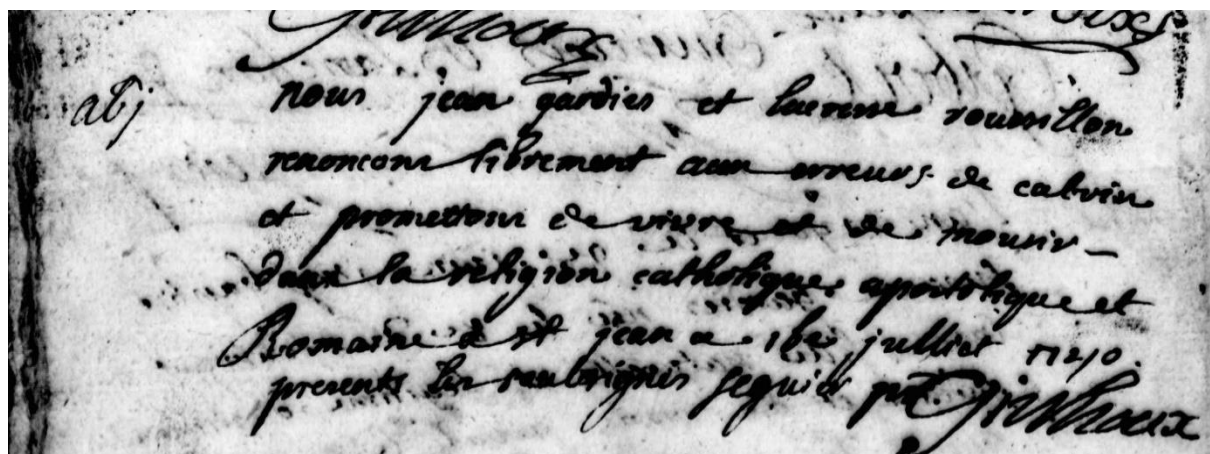 abj
nous jean gardies et laurens roussillon
renoncons librement aux erreurs de calvin
et promettons de vivre et de mourir
dans la religion catholique apostolique et
Romaine a st jean ce julliet
presents les soubsignes seguier